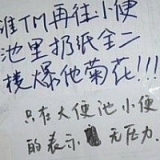 谁TM再往小便
池里扔纸全二
楼爆他菊花!!!
只在大便池小便
的表示 无压力